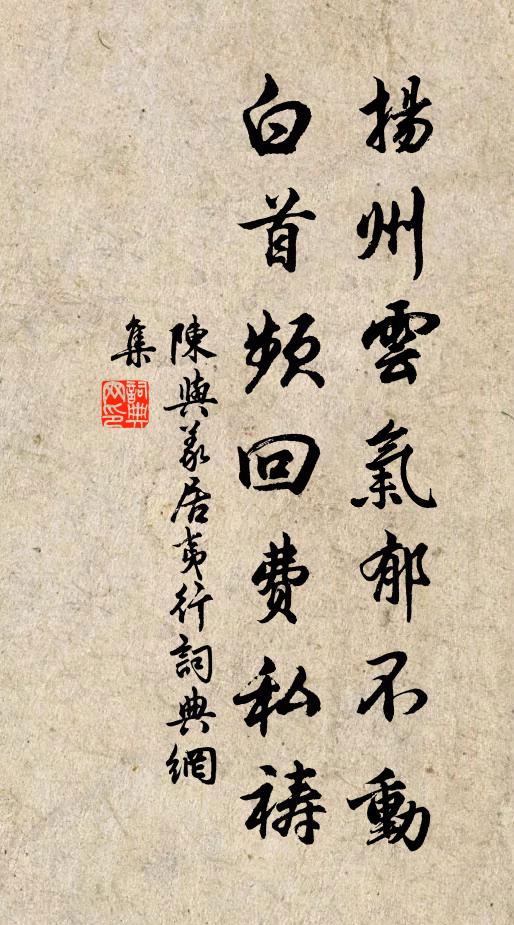 揚州雲氣郁不動
白首頻回費私禱
陳與義居夷行詞典網
集
詞典網印